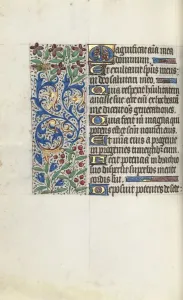 Magnificat aĩa mea
dominum.
Et exultauit spũs meus
in deo salutari meo.
Quia respexit humilitatem
ancille sue ecce enĩ ex hoc beatã
me dicent oẽs generationes.
Quia fecit m̃ magna qui
potens est et sc̃m nomen eius.
Et mĩa eius a progenie
in progenies timentibus eum.
Fecit potentiã in brachio
suo dispersit superbos mente
cordis sui.
Deposuit potentes de sede